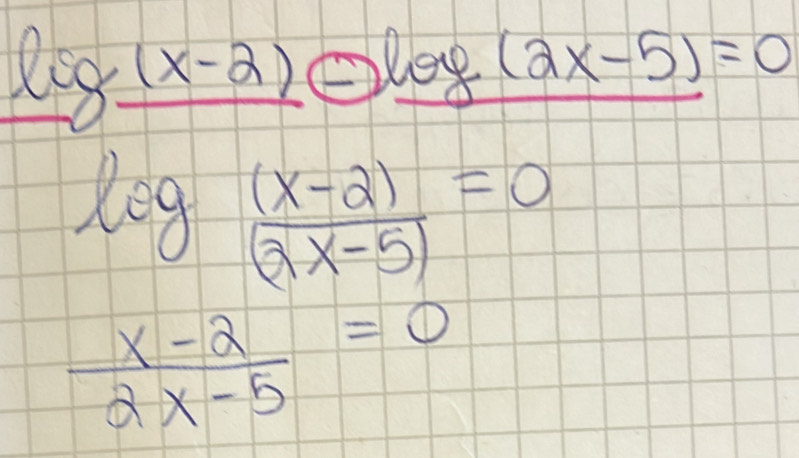 log (x-2) - log (2x-5) = 0
log (x-2)/(2x-5) = 0
x-2/2x-5 = 0